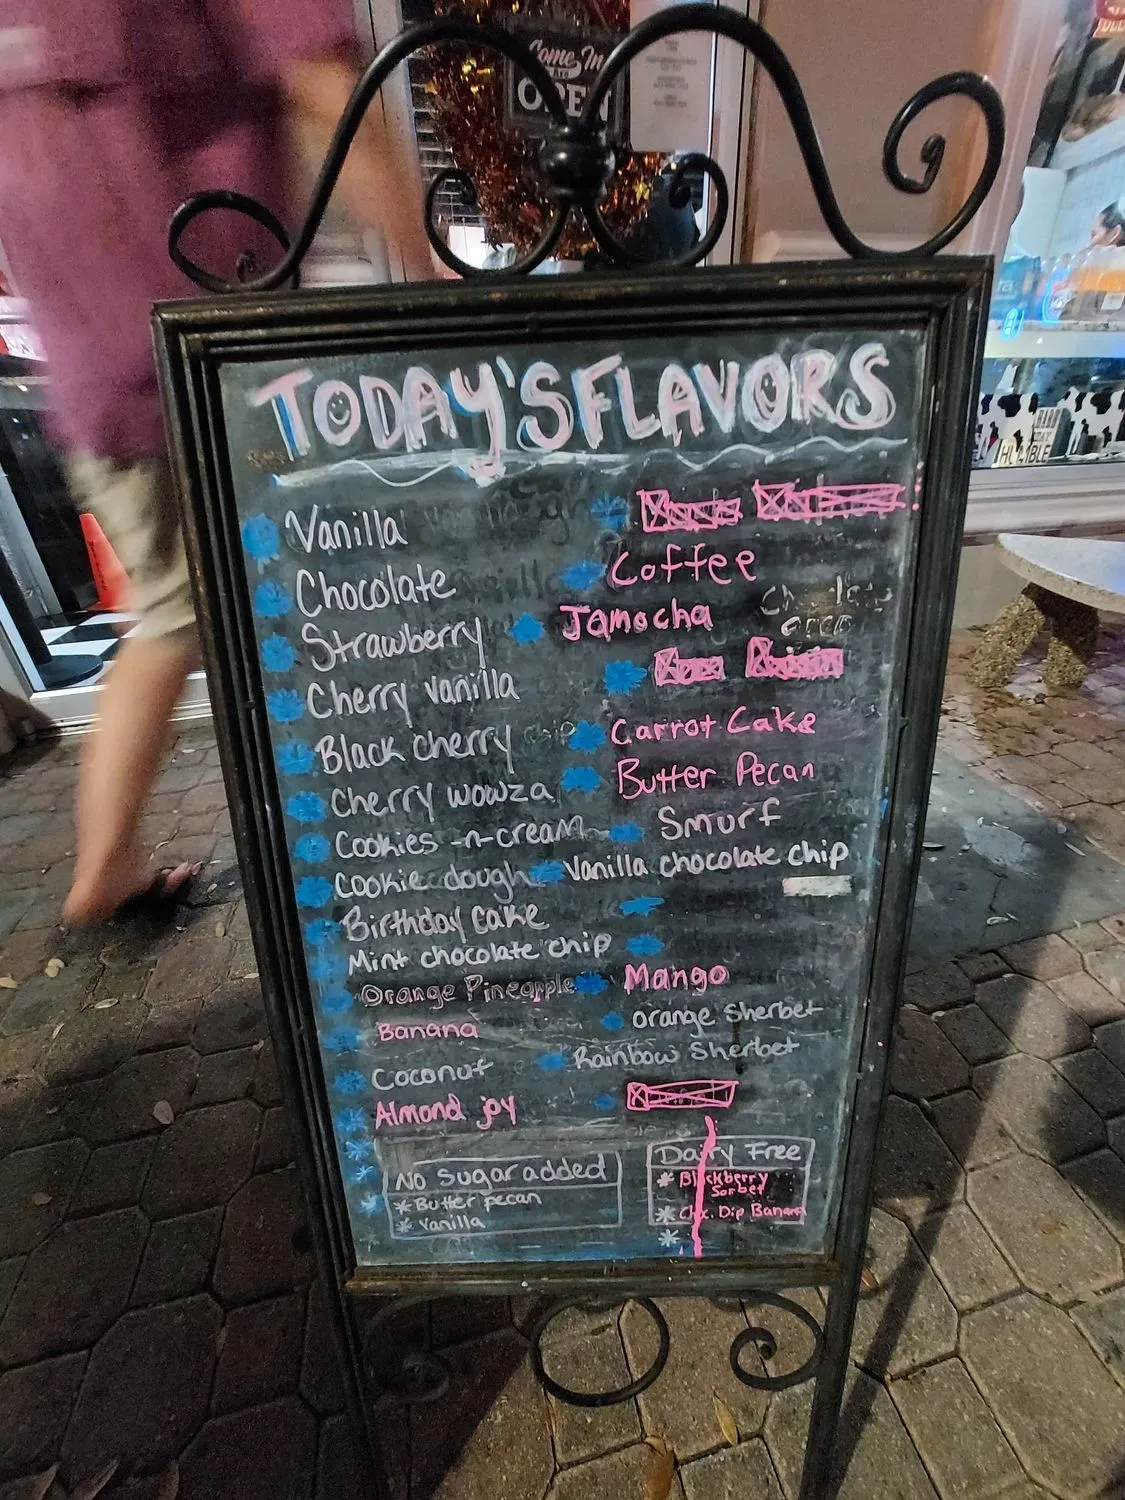 Come In
OPEN
TODAY'S FLAVORS
Vanilla
Chocolate
Strawberry
Cherry vanilla
Black cherry
Cherry wowza
Cookies -n-cream
Cookie dough
Birthday cake
Mint chocolate chip
Orange Pineapple
Banana
Coconut
Almond joy
Coffee
Jamocha
Carrot Cake
Butter Pecan
Smurf
Vanilla chocolate chip
Mango
orange Sherbet
Rainbow Sherbet
No sugar added
* Butter pecan
* Vanilla
Dairy Free
* Blackberry
Sorbet
* Chx. Dip Banana
*